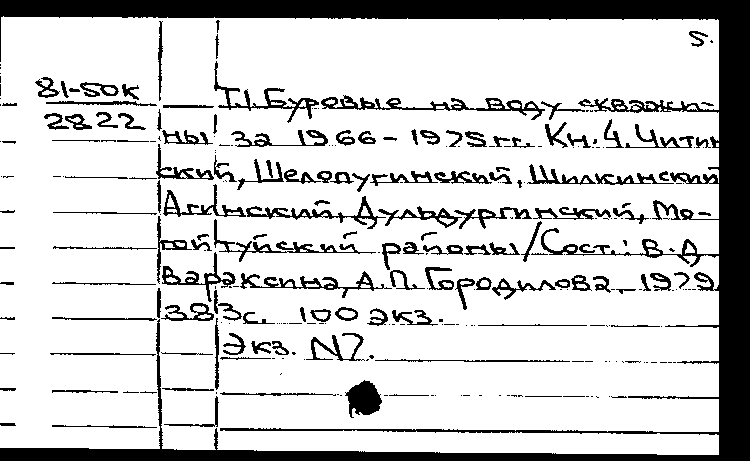 5.
81-50к
2822
Т.1. Буровые на воду скважи-
ны за 1966-1975 гг. Кн.4. Читин
ский, Шелопугинский, Шилкинский
Агинский, Дульдургинский, Мо-
гойтуйский районы/Сост.: В.А.
Вараксина, А.П. Городилова. 1979
383с. 100 экз.
Экз. N7.